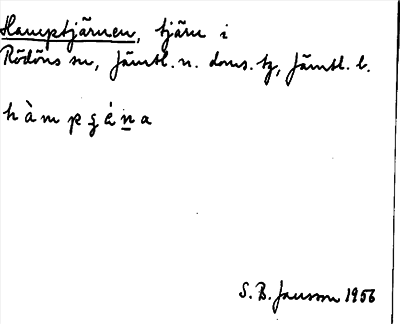 Hamptjärnen, tjärn i
Rödöns sn, Jämtl. n. doms. tg, Jämtl. l.
hàmpȿéna
S. B. Jansson 1956